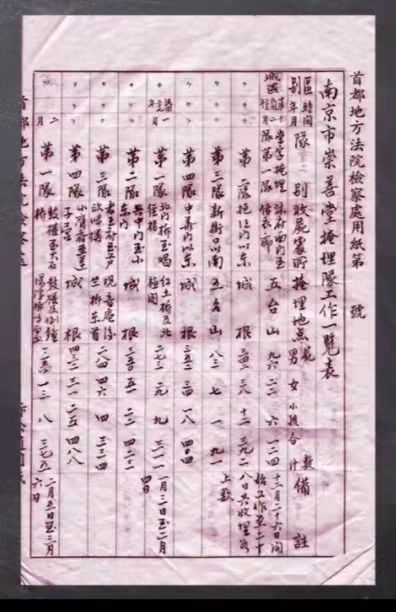 首都地方法院檢察處用紙第 號
南京市崇善堂掩埋隊工作一覽表
區別 時間年月 隊別 收屍處所 掩埋地點 屍數 男 女 小孩 合計 備註
城區 第一隊 五台山 九六 二二 六 一二四 十二月二十六日開始工作至二十八日共收埋如上數
〃 〃 第二隊 挹江門以東 城根 三八 十二 三九二
〃 〃 第三隊 新街口以南 五台山 八三 七 一 九一
〃 〃 第四隊 中華門以東 城根 一八
〃 一月 第一隊 北門橋至唱經樓 紅土橋及北極閣 二七三 二九 九 三一一 一月三日至二月四日
〃 〃 第二隊 興中門至小東門 城根 三五〇 五一 二二 四二三
〃 〃 第三隊 觀音庵後竺橋東首 二八四 四六 四 三三四
〃 〃 第四隊 城根 四三二 三一 二五 四八八
〃 二月 第一隊 鼓樓至大石橋 一三 八 三七五 二月五日至三月六日
首都地方法院檢察處